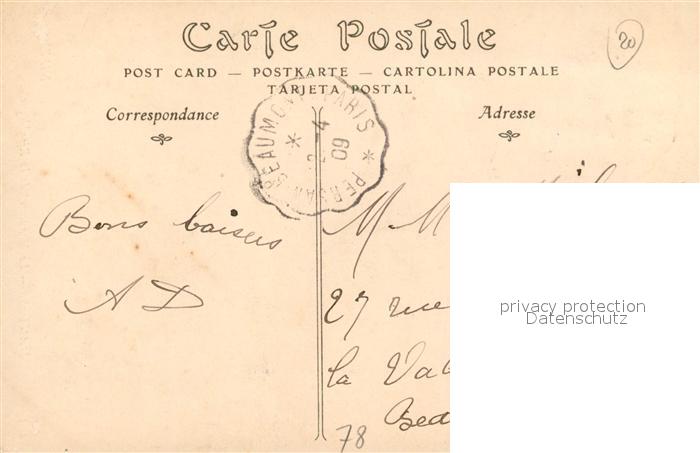 Carte Postale
20
POST CARD — POSTKARTE — CARTOLINA POSTALE
TARJETA POSTAL
Correspondance
Adresse
PERSAN-BEAUMONT PARIS
2-4
09
Bons baisers
A D
M M
27 rue
la
78
privacy protection
Datenschutz